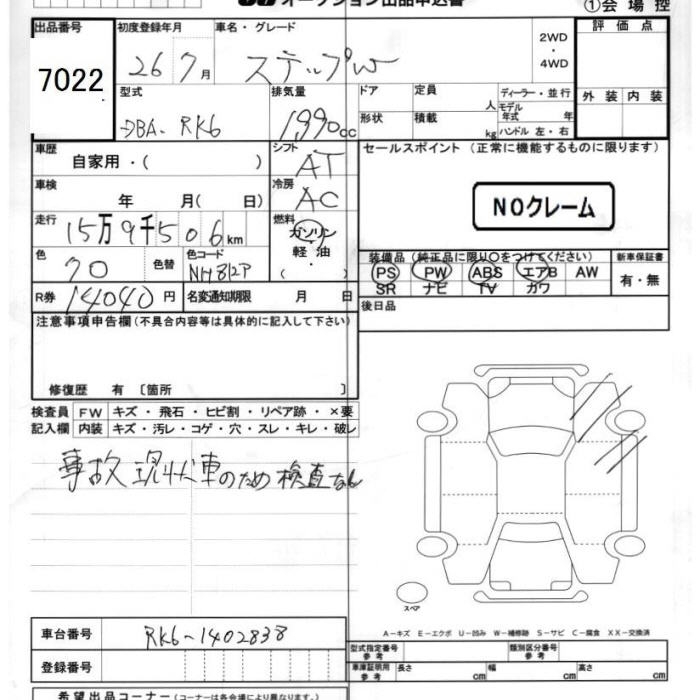 オークション出品申込書
①会場控
出品番号 初度登録年月 車名・グレード 評価点
7022 26 7月 ステップW 2WD・4WD
型式 排気量 ドア 定員 人 ディーラー・並行 外装 内装
DBA-RK6 1990cc 形状 積載 kg モデル年式 年
ハンドル 左・右
車歴 シフト セールスポイント (正常に機能するものに限ります)
自家用・( ) AT
車検 冷房
年 月( 日) AC NOクレーム
走行 燃料
15万9千506km ガソリン・軽油・( )
色 色替 色コード 装備品 (純正品に限り○をつけてください) 新車保証書
クロ NH812P PS PW ABS エアB AW 有・無
SR ナビ TV カワ
R券 14040円 名変通知期限 月 日 後日品
注意事項申告欄 (不具合内容等は具体的に記入して下さい)
修復歴 有 〔箇所 〕
検査員 FW キズ・飛石・ヒビ割・リペア跡・×要
記入欄 内装 キズ・汚レ・コゲ・穴・スレ・キレ・破レ
事故現状車のため検査なし
スペア
A-キズ E-エクボ U-凹み W-補修跡 S-サビ C-腐食 XX-交換済
車台番号 RK6-1402838
型式指定番号 参考 類別区分番号 参考
登録番号 車庫証明用 参考 長さ cm 幅 cm 高さ cm
希望出品コーナー (コーナーは各会場により異なります。)